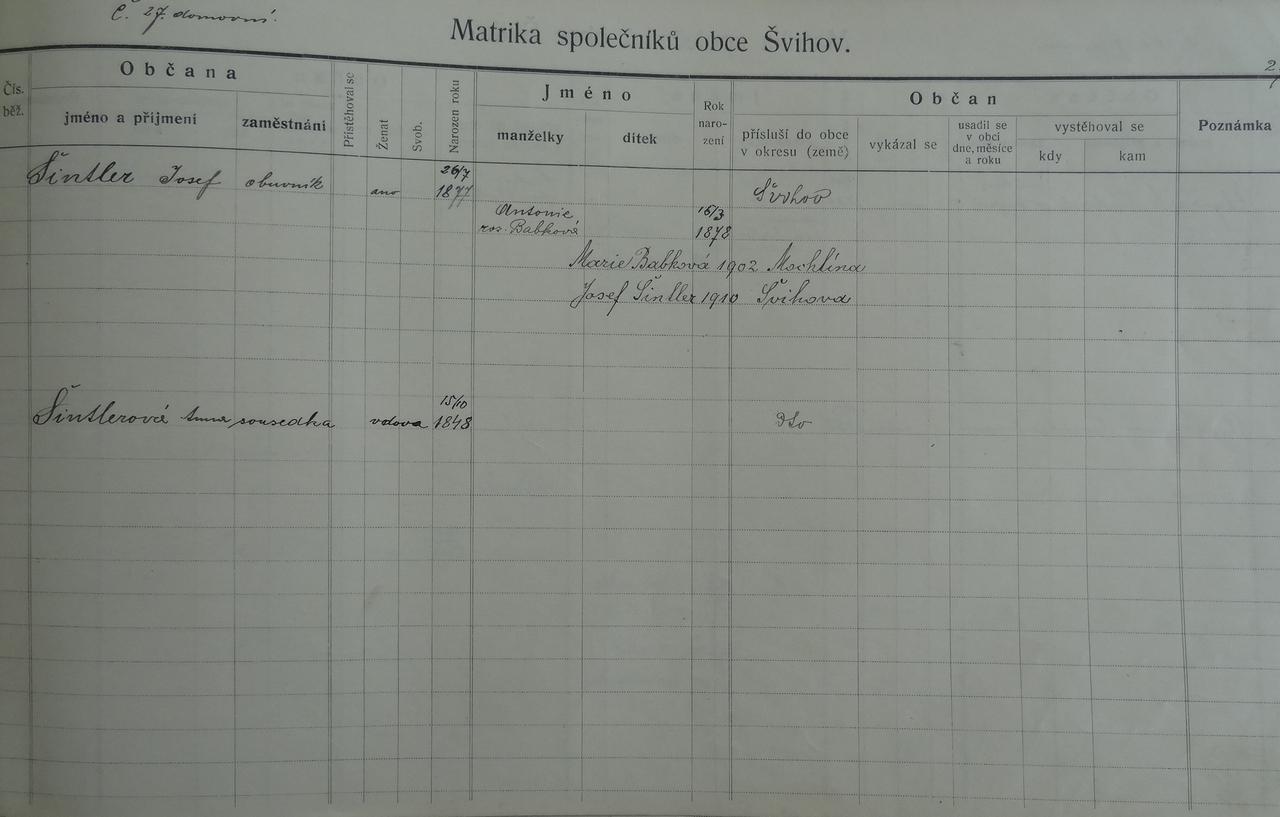 Č. 27. domovní.
Matrika společníků obce Švihov.
2.
Čís. běž.
Občana
jméno a přijmení
zaměstnání
Přistěhoval se
Ženat
Svob.
Narozen roku
Jméno
manželky
dítek
Rok naro- zení
Občan
přísluší do obce v okresu (země)
vykázal se
usadil se v obci dne, měsíce a roku
vystěhoval se
kdy
kam
Poznámka
Šintler Josef obuvník ano 26/7 1877 Švihov
Antonie, roz. Babková 16/3 1878
Marie Babková 1902 Mochtína
Josef Šintler 1910 Švihova
Šintlerová Anna sousedka vdova 15/10 1848 dto